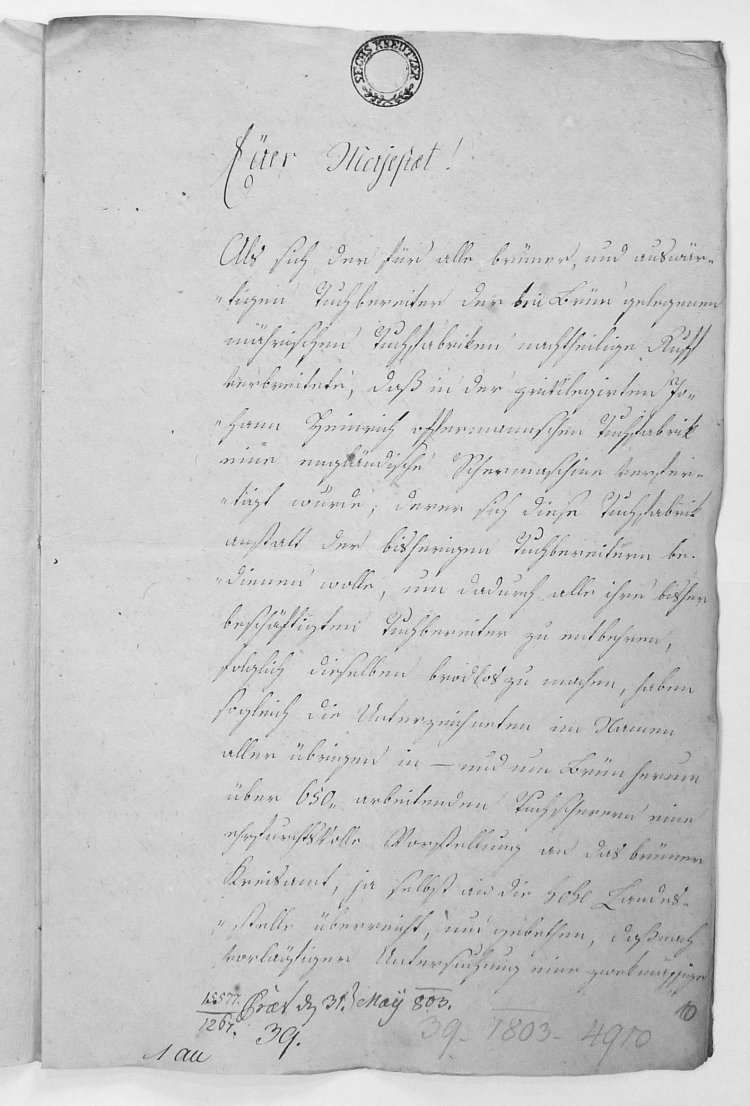 SECHS KREUTZER
Euer Majestæt!
Als sich der für alle brünner, und auswär-
-tigen Tuchbereiter der bei Brün gelegenen
mährischen Tuchfabriken nachtheilige Ruff
verbreitete, daß in der privilegirten Jo-
-hann Heinrich offermannischen Tuchfabrik
eine engländische Schermaschine verfer-
-tigt wurde, derer sich diese Tuchfabrik
anstatt der bisherigen Tuchbereitern be-
-dienen wolle, um dadurch alle ihre bisher
beschäftigten Tuchbereiter zu entbehren,
folglich dieselben brodlos zu machen, haben
sogleich die Unterzeichneten im Namen
aller übrigen in – und um Brün herum
über 650,, arbeitenden Tuchscherern eine
ehrfurchtsvolle Vorstellung an das brünner
Kreisamt, ja selbst an die hohe Landes-
-stelle überreicht, und gebethen, daß nach
vorläufiger Untersuchung eine zwekmässige
15577. Præs. den 31. May 803.
1267. 39.
39- 1803- 4910
10